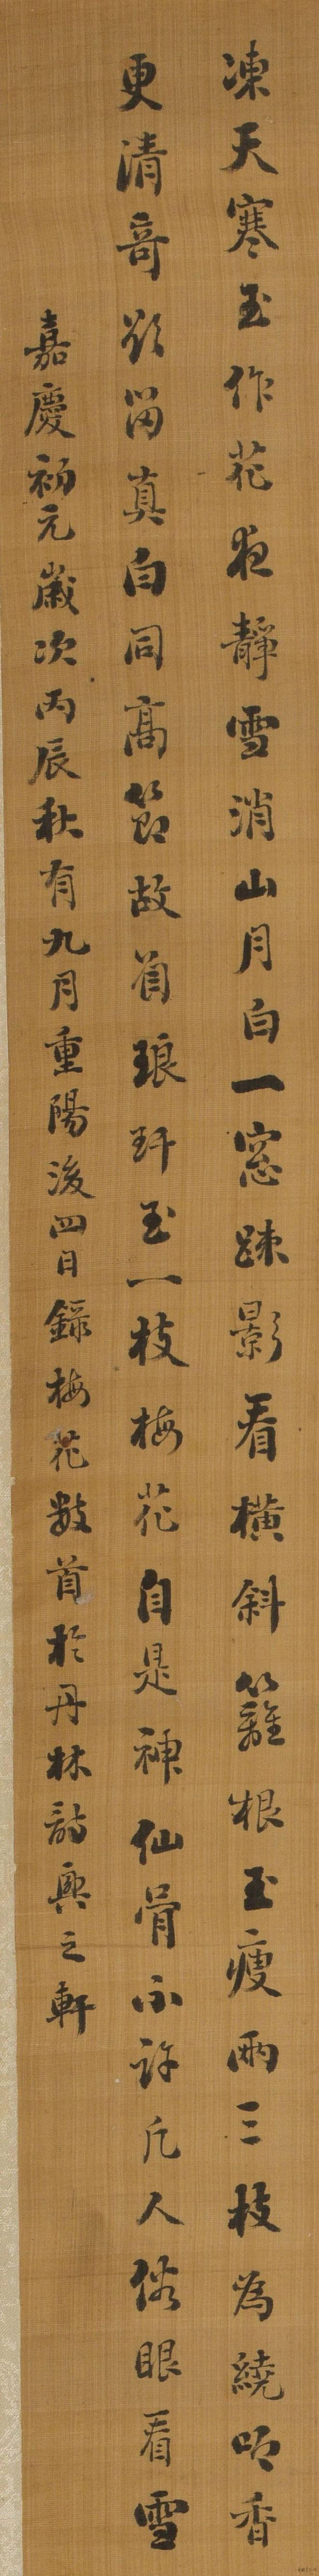 凍天寒玉作花夜靜雪消山月白一窓疎影看橫斜籬根玉瘦兩三枝為繞吟香
更清奇欲留真白同高節故
琅玕玉一枝梅花自是神仙骨不許凡人俗眼看雪
嘉慶初元歲次丙辰秋有九月重陽後四日錄梅花數首於丹林詩興之軒